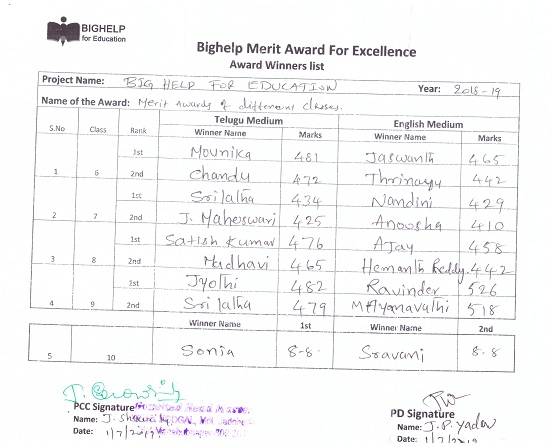 BIGHELP
for Education
Bighelp Merit Award For Excellence
Award Winners list
Project Name: BIG HELP FOR EDUCATION Year: 2018-19
Name of the Award: Merit Awards of different classes.
Telugu Medium English Medium
S.No Class Rank Winner Name Marks Winner Name Marks
1st Mounika 481 Jaswanth 465
1 6 2nd Chandu 472 Thrinayu 442
1st Srilatha 434 Nandini 429
2 7 2nd J. Maheswari 425 Anoosha 410
1st Satish Kumar 476 Ajay 458
3 8 2nd Madhavi 465 Hemanth Reddy 442
1st Jyothi 482 Ravinder 526
4 9 2nd Srilatha 479 518
Winner Name 1st Winner Name 2nd
5 10 Sonia 8-8 Sravani 8.8
PCC Signature PD Signature
Name: J. Name: J.P. Yadav
Date: 1/7/2019 Date: 1/7/2019